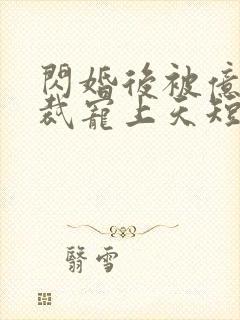 閃婚後被億
裁寵上天短
翳雪